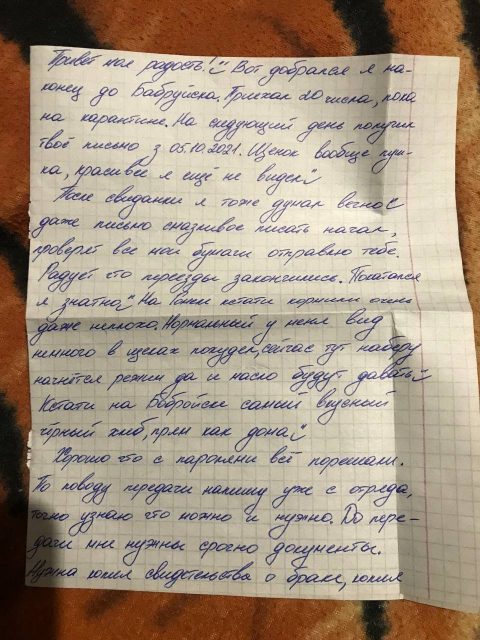 Привет моя радость! Вот добрался я на-
конец до Бабруйска. Приехал 20 числа, пока
на карантине. На следующий день получил
твоё письмо з 05.10.2021. Щенок вообще пуш-
ка, красивее я ещё не видел
После свиданки я тоже думал вечно
даже письмо писать начал,
проверят все мои бумаги отправлю тебе.
Радует что переезды закончились. Покатался
я знатно На кстати кормили очень
даже неплохо. Нормальный у меня вид
немного в щеках похудел, сейчас тут наберу
начнётся режим да и масло будут давать
Кстати на Бобруйске самый вкусный
чёрный хлеб, прям как дома
Хорошо что с паролями всё порешали.
По поводу передачи напишу уже с отряда,
точно узнаю что можно и нужно. До пере-
дачи мне нужны срочно документы.
Нужна копия свидетельства о браке, копия